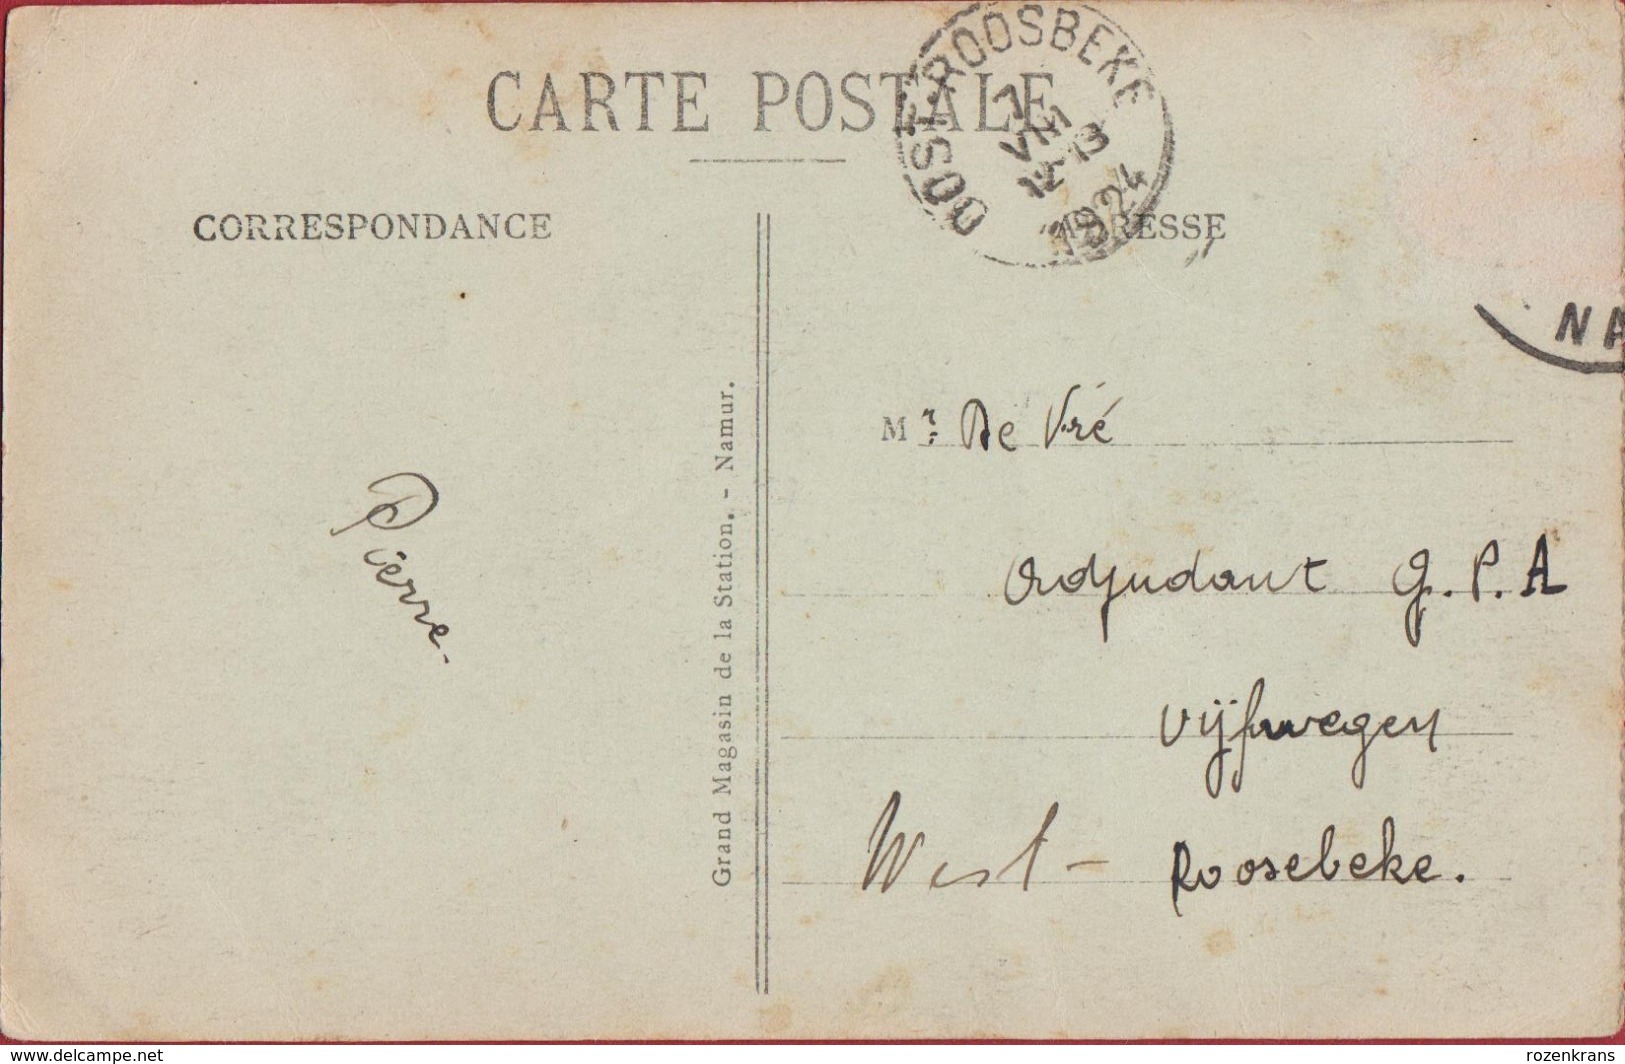 CARTE POSTALE
OOST-ROOSBEKE
7
VIII
12-13
1924
CORRESPONDANCE
ADRESSE
NA
Mr: De Vré
Adjudant G.P.A
Vijfwegen
West- Roosebeke.
Pierre-
Grand Magasin de la Station. - Namur.
www.delcampe.net
rozenkrans